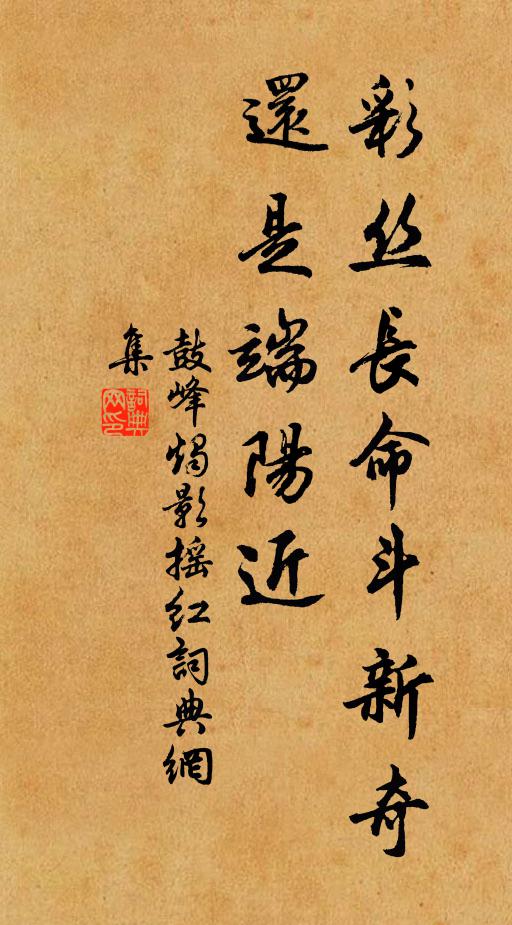 彩丝長命斗新奇
還是端陽近
鼓峰燭影摇红詞典網
集
詞典
网印